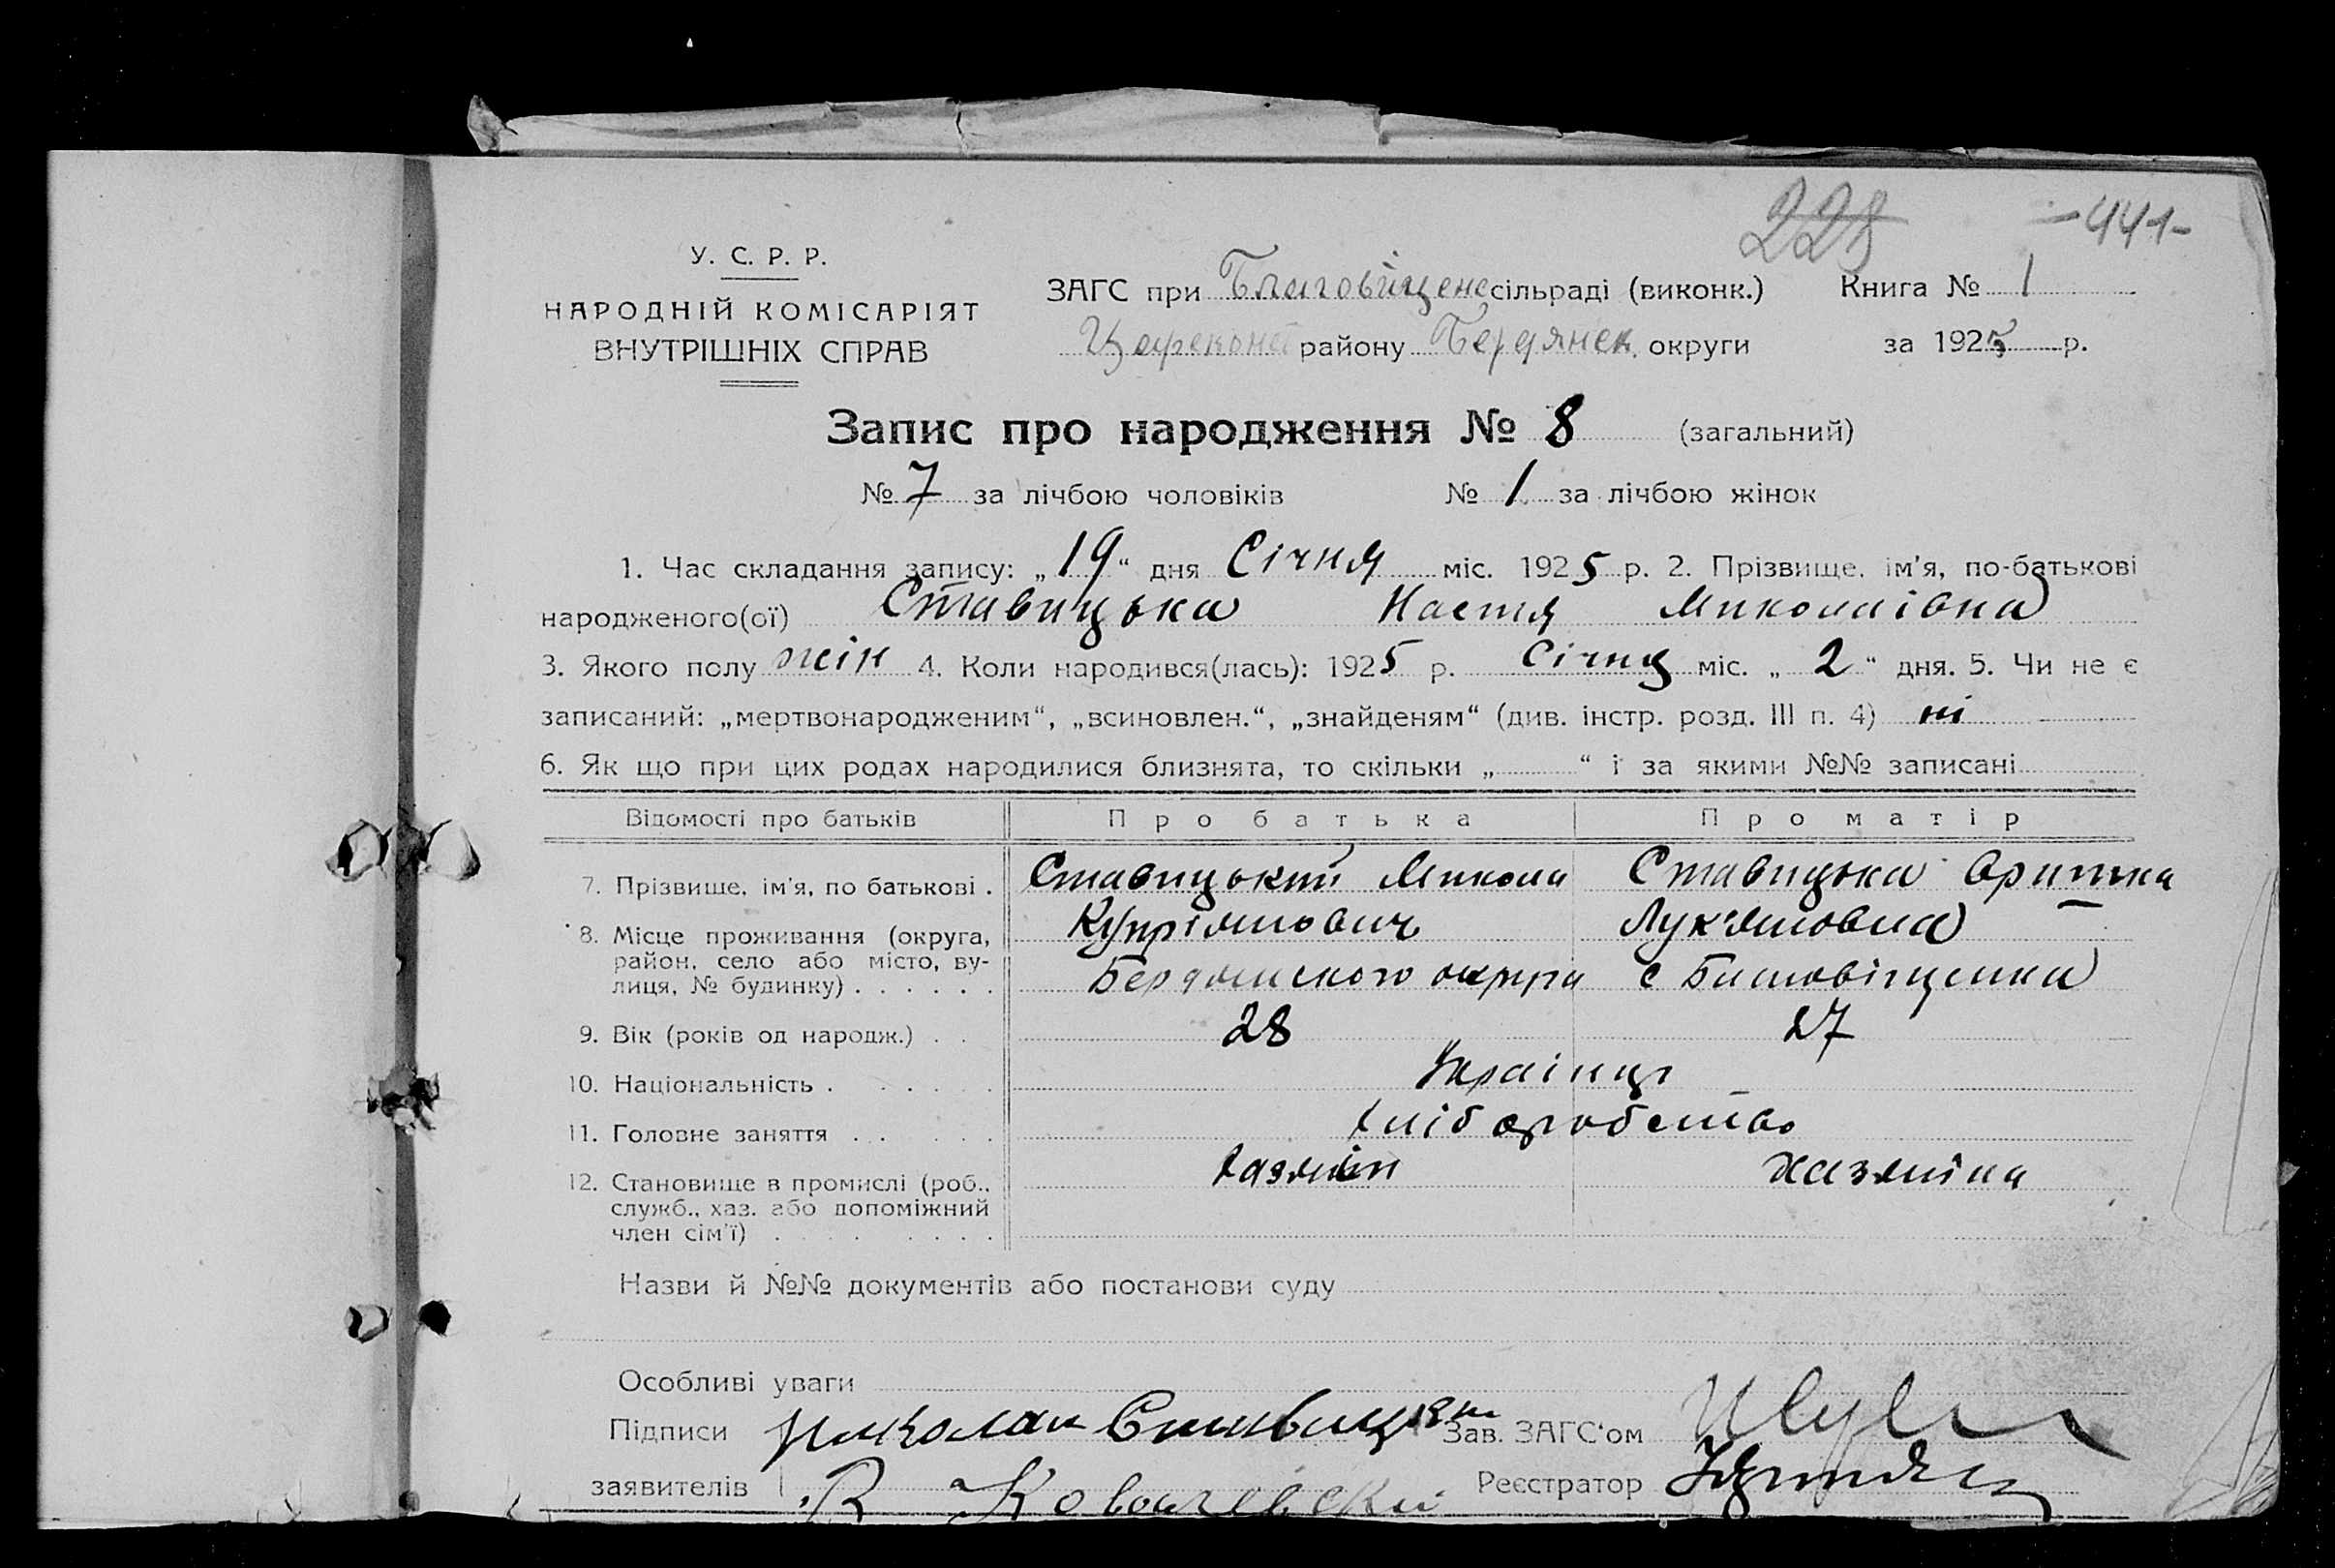 228
-441-
У. С. Р. Р.
НАРОДНІЙ КОМІСАРІЯТ
ВНУТРІШНІХ СПРАВ
ЗАГС при Благовіщенс сільраді (виконк.) Книга № 1
району Бердянск. округи за 1925 р.
Запис про народження № 8 (загальний)
№ 7 за лічбою чоловіків № 1 за лічбою жінок
1. Час складання запису: „19“ дня Січня міс. 1925 р. 2. Прізвище, ім'я, по-батькові
народженого(ої) Ставицька Настя Миколаівна
3. Якого полу жін 4. Коли народився(лась): 1925 р. Січня міс. „2“ дня. 5. Чи не є
записаний: „мертвонародженим“, „всиновлен.“, „знайденям“ (див. інстр. розд. III п. 4) ні
6. Як що при цих родах народилися близнята, то скільки „ “ і за якими №№ записані
Відомості про батьків Про батька Про матір
7. Прізвище, ім'я, по батькові . Ставицький Микола Ставицька Оришка
Купріянович Лук'яновна
8. Місце проживання (округа,
район, село або місто, ву-
лиця, № будинку) . . . . . . Бердянского округа с Благовіщенка
9. Вік (років од народж.) . . 28 27
10. Національність . . . . . Украінці
11. Головне заняття . . . . . хліборобство
12. Становище в промислі (роб., хазяїн хазяїна
служб., хаз. або допоміжний
член сім'ї) . . . . . . . .
Назви й №№ документів або постанови суду
Особливі уваги
Підписи Николай Ставицкий Зав. ЗАГС'ом
заявителів Ковалевский Реєстратор